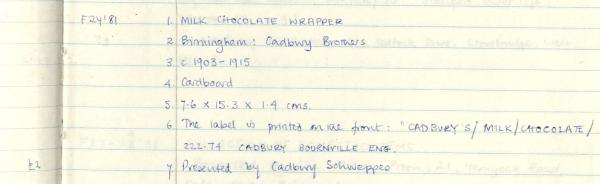 F24'81 1. MILK CHOCOLATE WRAPPER
2. Birmingham: Cadbury Brothers
3. c 1903-1915
4. Cardboard
5. 7.6 x 15.3 x 1.4 cms.
6. The label is printed on the front: "CADBURY'S/ MILK/CHOCOLATE/
222.74 CADBURY BOURNVILLE ENG.
£2 7. Presented by Cadbury Schweppes